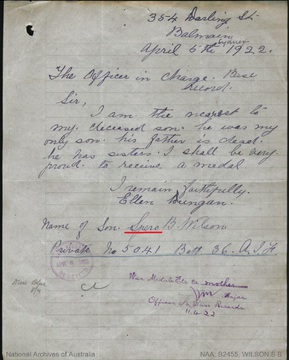 354 Darling St.
Balmain
Sydney
April 5th 1922.
The Officer in Charge. Base
Record.
Sir,
I am the nearest to
my deceased son. he was my
only son. his father is dead.
he has sisters. I shall be very
proud to receive a medal
I remain faithfully
Ellen Mungan.
Name of Son. Spero B. Wilson
Private No 5041 Batt 36. A.I.F.
War Medal to mother
Major
Officer Base Records
11.4.22
National Archives of Australia
NAA: B2455, WILSON S B